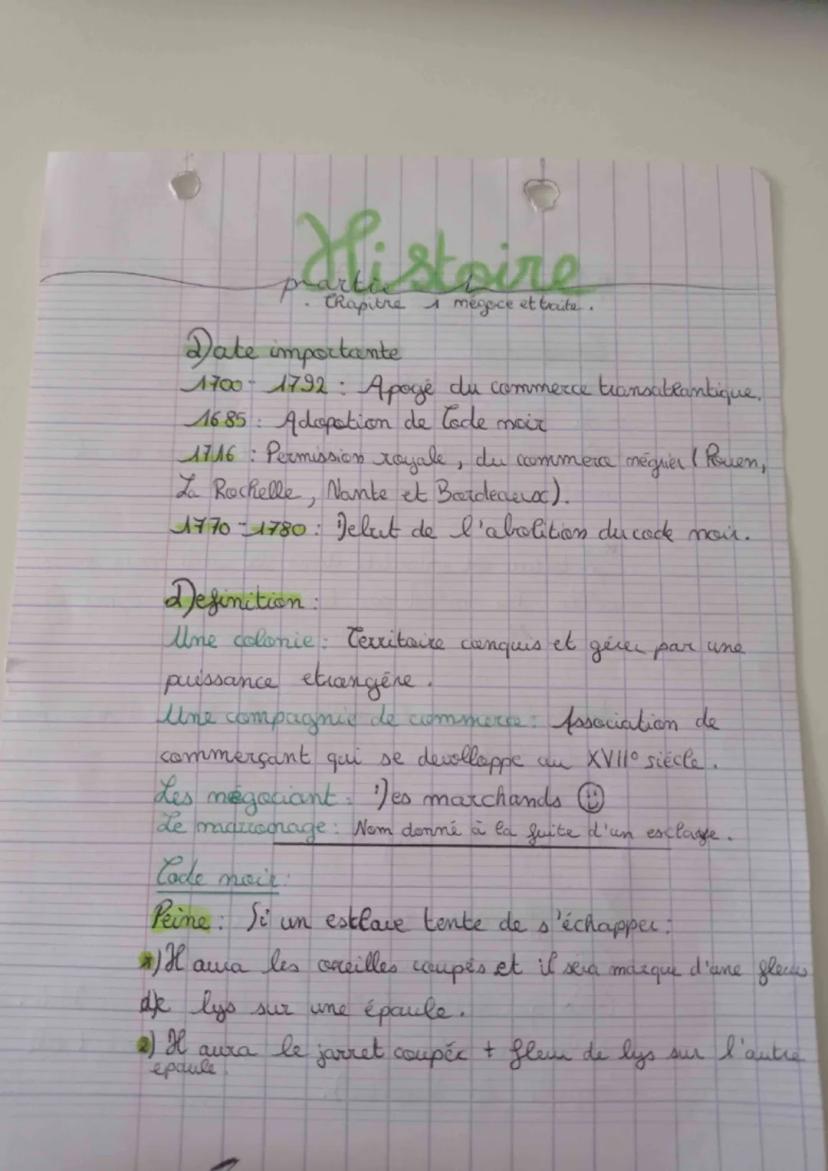 Histoire
partie 1
. Chapitre 1 négoce et traite.
Date importante
1700 - 1792 : Apogé du commerce transatlantique.
1685 : Adoption de Code noir
1716 : Permission royale, du commerce négrier (Rouen,
La Rochelle, Nante et Bordeaux).
1770 - 1780 : Debut de l'abolition du code noir.
Definition :
Une colonie : Territoire conquis et gérer par une
puissance etrangère.
Une compagnie de commerce : Association de
commerçant qui se devollappe au XVII° siècle.
Les négociant : Des marchands
Le marronage : Nom donné à la fuite d'un esclave.
Code noir :
Peine : Si un esclave tente de s'échapper :
1) Il aura les oreilles coupés et il sera marqué d'une fleur
de lys sur une épaule.
2) Il aura le jarret coupée + fleur de lys sur l'autre
épaule